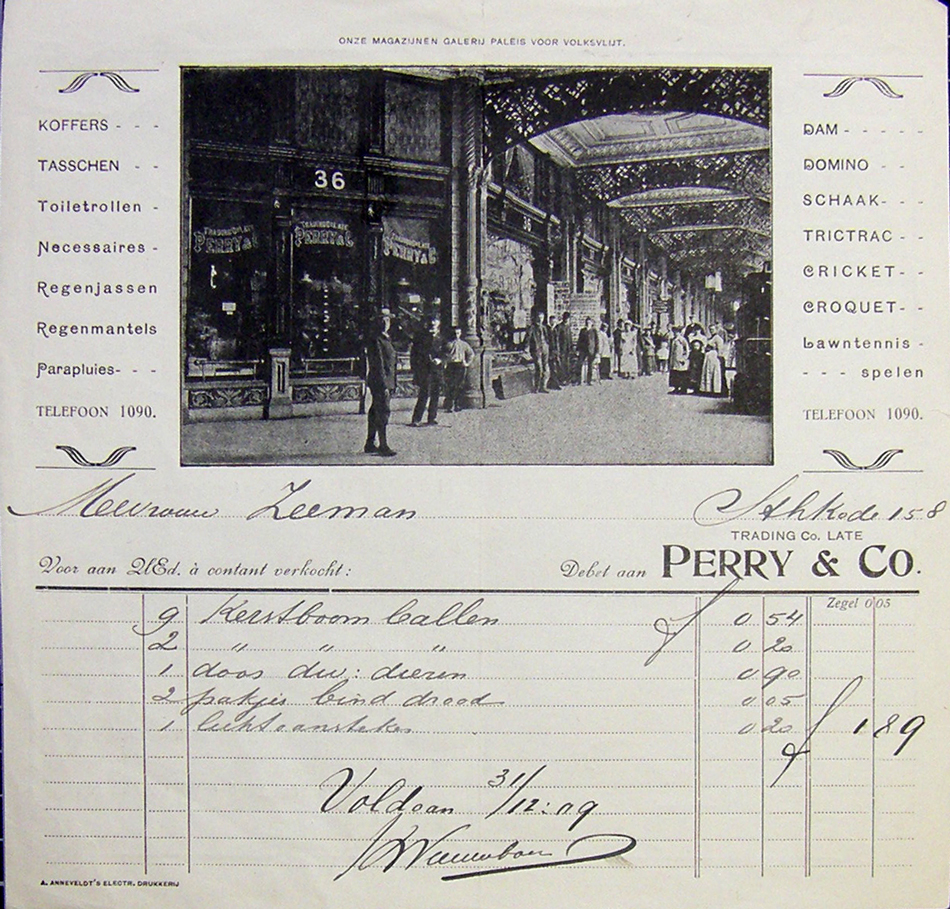 ONZE MAGAZIJNEN GALERIJ PALEIS VOOR VOLKSVLIJT.
KOFFERS - - -
TASSCHEN - -
Toiletrollen -
Necessaires -
Regenjassen
Regenmantels
Parapluies- - -
TELEFOON 1090.
36
PERRY & C
PERRY & C
PERRY & C
36
DAM - - - - -
DOMINO - -
SCHAAK- - -
TRICTRAC - -
CRICKET- -
CROQUET- -
Lawntennis -
- - - spelen
TELEFOON 1090.
Mevrouw Zeeman
Sthkade 158
TRADING Co. LATE
Voor aan UEd. à contant verkocht: Debet aan PERRY & CO.
Zegel 0 05
9 Kerstboom ballen f 0 54
2 " " " 0 20
1 doos div: dieren 0 90
2 pakjes bind draad 0 05
1 lichtaansteker 0 20 f 1 89
Voldaan 31/12: 09
A. ANNEVELDT'S ELECTR. DRUKKERIJ